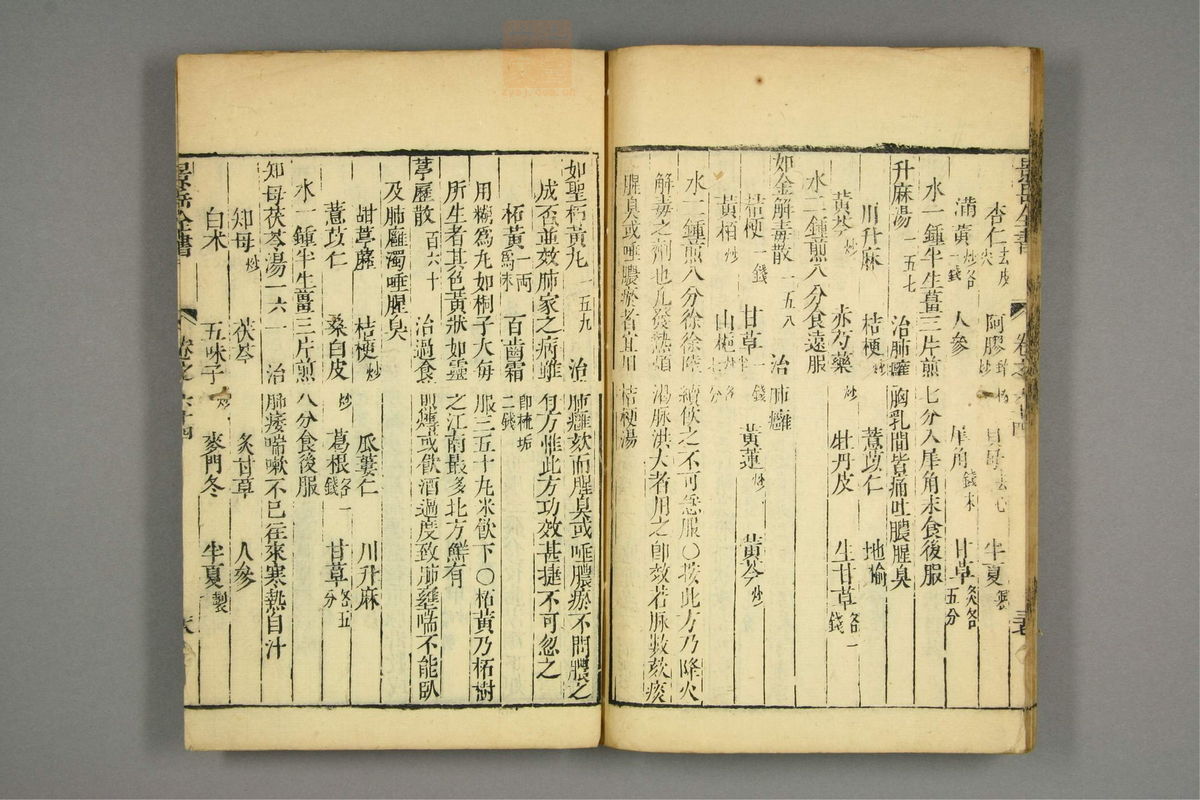 景岳全書
卷之六十四
杏仁去皮尖 阿膠炒 貝母去心 半夏製
蒲黃炒各一錢 人參 犀角錢末 甘草炙各五分
水一鍾半生薑三片煎七分入犀角末食後服
升麻湯一五七 治肺癰胸乳間皆痛吐膿腥臭
川升麻 桔梗炒 薏苡仁 地榆
黃芩炒 赤芍藥炒 牡丹皮 生甘草各一錢
水二鍾煎八分食遠服
如金解毒散一五八 治肺癰
桔梗一錢 甘草一錢半 黃連炒 黃芩炒
黃栢炒 山梔炒各七分
水二鍾煎八分徐徐陸續飲之不可急服○按此方乃降火
解毒之劑也凡發熱煩渴脉洪大者用之即效若脉數欬痰
腥臭或唾膿瘀者宜用桔梗湯
如聖柘黃丸一五九 治肺癰欬而腥臭或唾膿瘀不問膿之
成否並效肺家之病雖有方惟此方功效甚捷不可忽之
柘黃一両爲末 百齒霜即梳垢二錢
用糊爲丸如桐子大每服三五十丸米飲下○柘黃乃柘樹
所生者其色黃狀如靈之江南最多北方鮮有
葶藶散百六十 治過食煎煿或飲酒過度致肺壅喘不能臥
及肺癰濁唾腥臭
甜葶藶 桔梗炒 瓜蔞仁 川升麻
薏苡仁 桑白皮炒 葛根各一錢 甘草各五分
水一鍾半生薑三片煎八分食後服
知母茯苓湯一六一 治肺痿喘嗽不已往來寒熱自汗
知母炒 茯苓 炙甘草 人參
白术 五味子炒 麥門冬 半夏製
景岳全書
卷之六十四